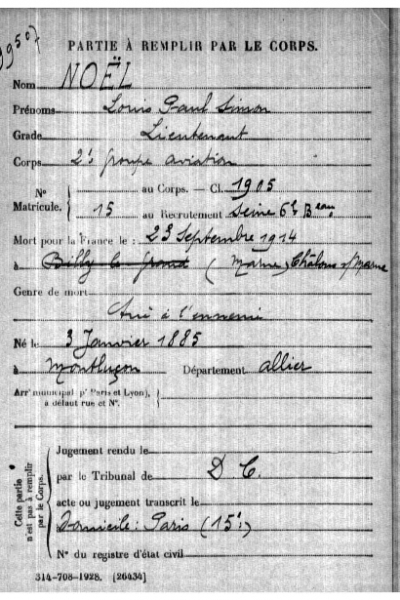 9950f
PARTIE À REMPLIR PAR LE CORPS.
Nom NOËL
Prénoms Louis Paul Simon
Grade Lieutenant
Corps 2e groupe aviation
N° Matricule. { au Corps. — Cl. 1905
15 au Recrutement Seine 6e Beau
Mort pour la France le : 23 Septembre 1914
à Billy le grand (Marne) Châlons s/ Marne
Genre de mort Tué à l'ennemi
Né le 3 Janvier 1885
à Montluçon Département Allier
Arrt municipal (pr Paris et Lyon), à défaut rue et N°.
Cette partie n'est pas à remplir par le Corps.
Jugement rendu le
par le Tribunal de D C.
acte ou jugement transcrit le
Domicile: Paris (15e)
N° du registre d'état civil
314-708-1928. [26434]